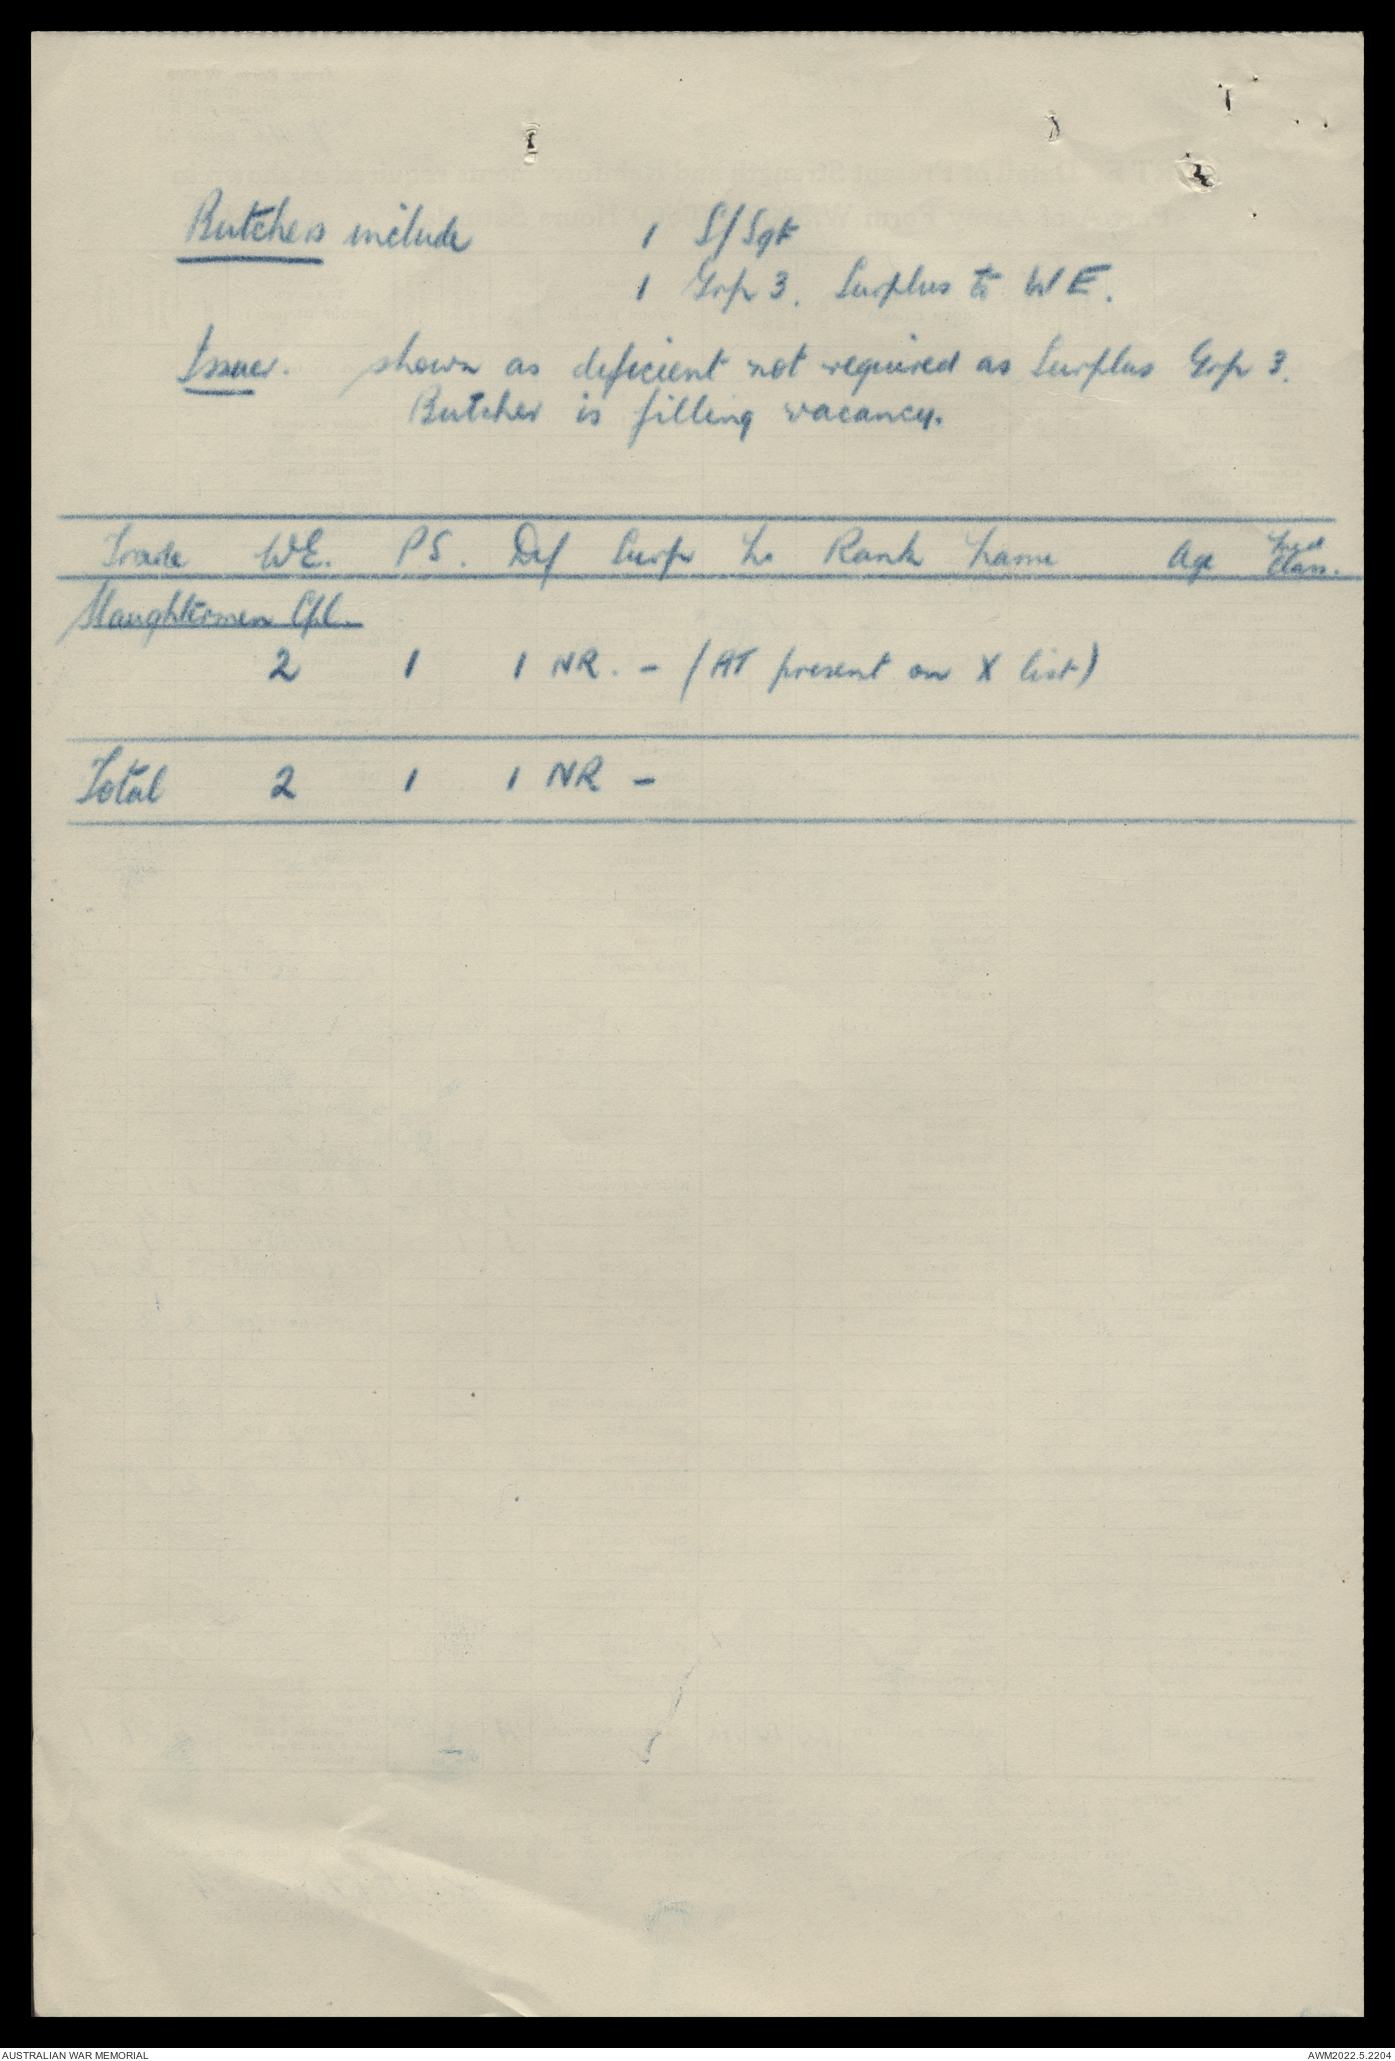 Butchers include 1 S/Sgt
1 Grp 3. Surplus to WE.
Issuer. shown as deficient not required as Surplus Grp 3.
Butcher is filling vacancy.
Trade WE. PS. Def Surp No Rank Name Age Med Class.
Slaughtermen Cpl.
2 1 1 NR. - (AT present on X list)
Total 2 1 1 NR -
AUSTRALIAN WAR MEMORIAL
AWM2022.5.2204